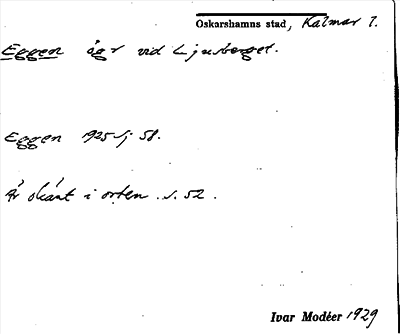 Oskarshamns stad, Kalmar l.
Eggen ägr vid Ljusberget.
Eggen 1925 sj 58.
Är okänt i orten. s. 52.
Ivar Modéer 1929